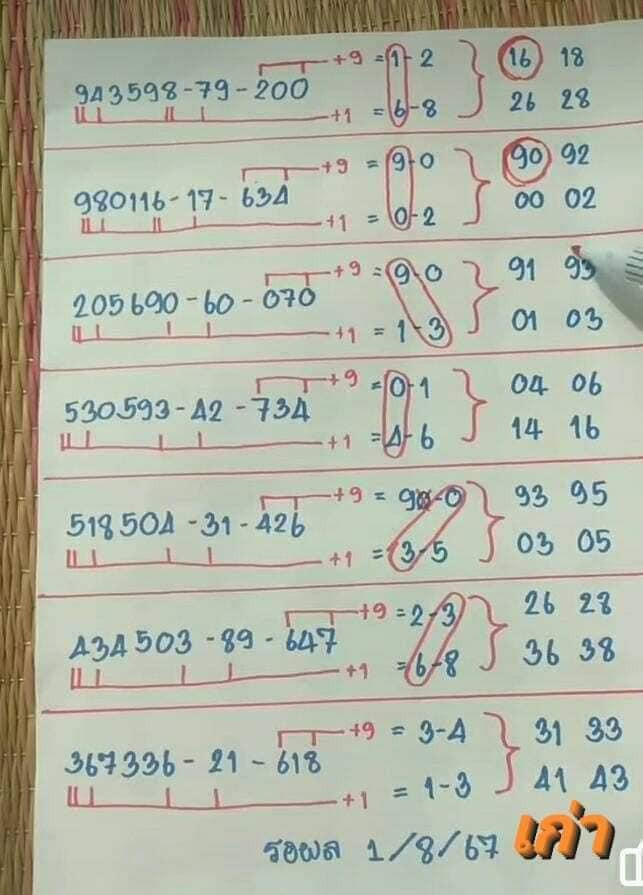 +9 = 1-2 16 18
943598-79-200
+1 = 6-8 26 28
+9 = 9-0 90 92
980116-17-634
+1 = 0-2 00 02
+9 = 9-0 91 93
205690-60-070
+1 = 1-3 01 03
+9 = 0-1 04 06
530593-42-734
+1 = 4-6 14 16
+9 = 9-0 93 95
518504-31-426
+1 = 3-5 03 05
+9 = 2-3 26 28
434503-89-647
+1 = 6-8 36 38
+9 = 3-4 31 33
367336-21-618
+1 = 1-3 41 43
รอผล 1/8/67
เก่า